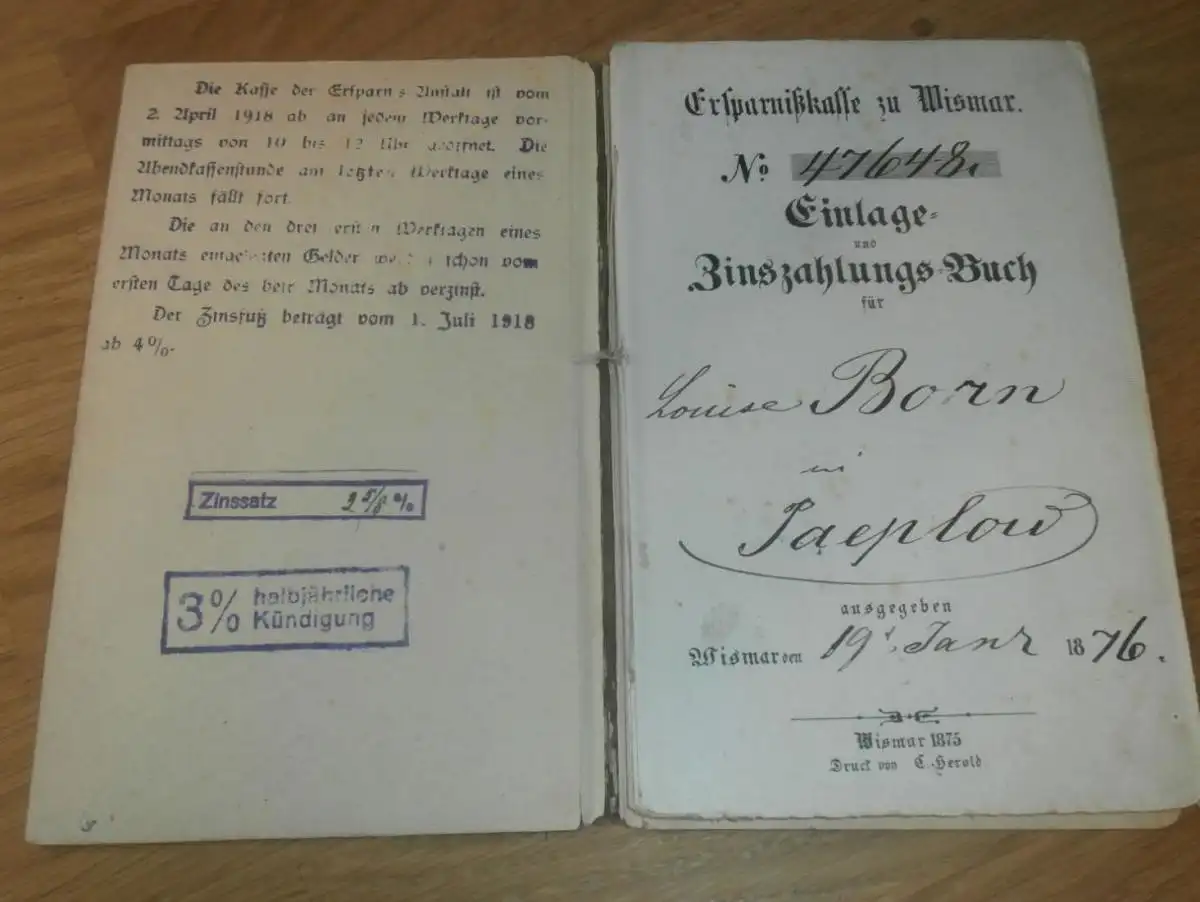 Die Kasse der Ersparnis Anstalt ist vom
2. April 1918 ab an jedem Werktage vor-
mittags von 10 bis 12 Uhr geöffnet. Die
Abendkassenstunde am letzten Werktage eines
Monats fällt fort.
Die an den drei ersten Werktagen eines
Monats eingezahlten Gelder werden schon vom
ersten Tage des betr Monats ab verzinst.
Der Zinsfuß beträgt vom 1. Juli 1918
ab 4%.
Zinssatz 2 5/8 %
3% halbjährliche
Kündigung
Ersparnißkasse zu Wismar.
No. 47648.
Einlage-
und
Zinszahlungs-Buch
für
Louise Born
in
Jaeplow
ausgegeben
Wismar den 19t Janr 1876.
Wismar 1875
Druck von C. Herold